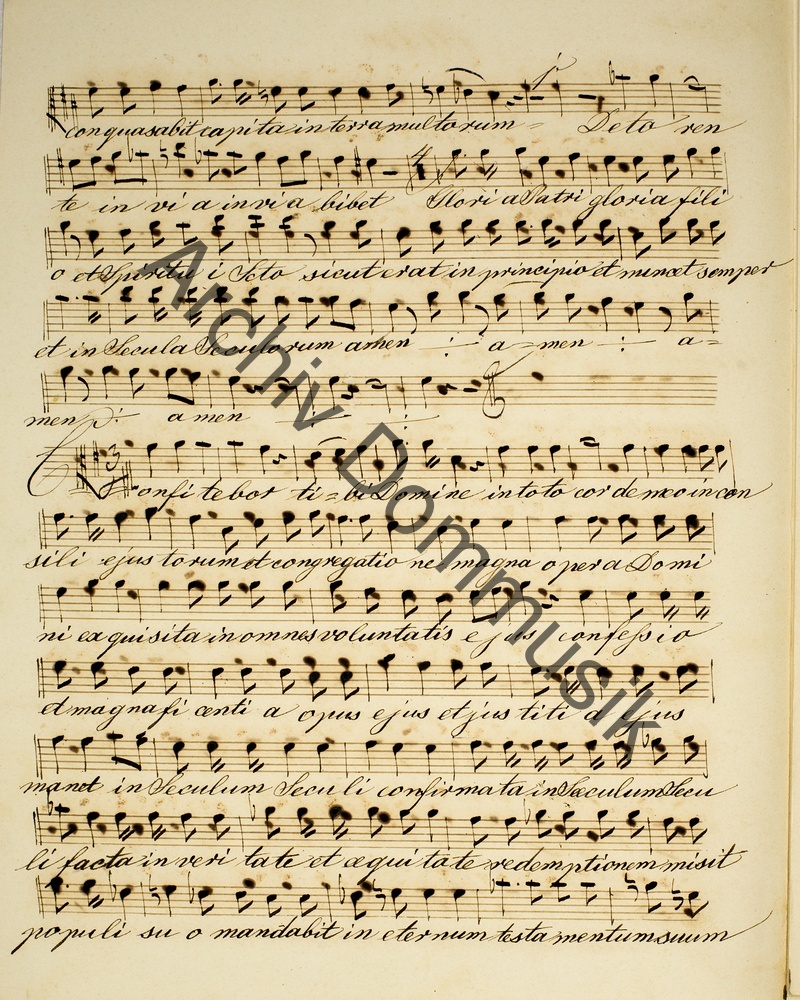 conquasabit capita in terra multorum = De to ren
te in vi a in vi a bibet Glori a Patri gloria fili
o et Spiritu i Scto sicut erat in principio et nuncet semper
et in Secula Seculorum amen ÷ a = men ÷ a =
men a men
Confi tebor ti = bi Domine in toto cor de meo in con
sili ejus torum et congregatio ne magna opera Domi
ni ex quisita in omnes voluntatis ejus confessio
et magnafi centi a opus ejus et jus titi a ejus
manet in Seculum Secu li confirmata in Sæculum Secu
li facta in veri tate et æqui tate redemptionem misit
populi su o mandabit in eternum testamentum suum
Archiv Dommusik